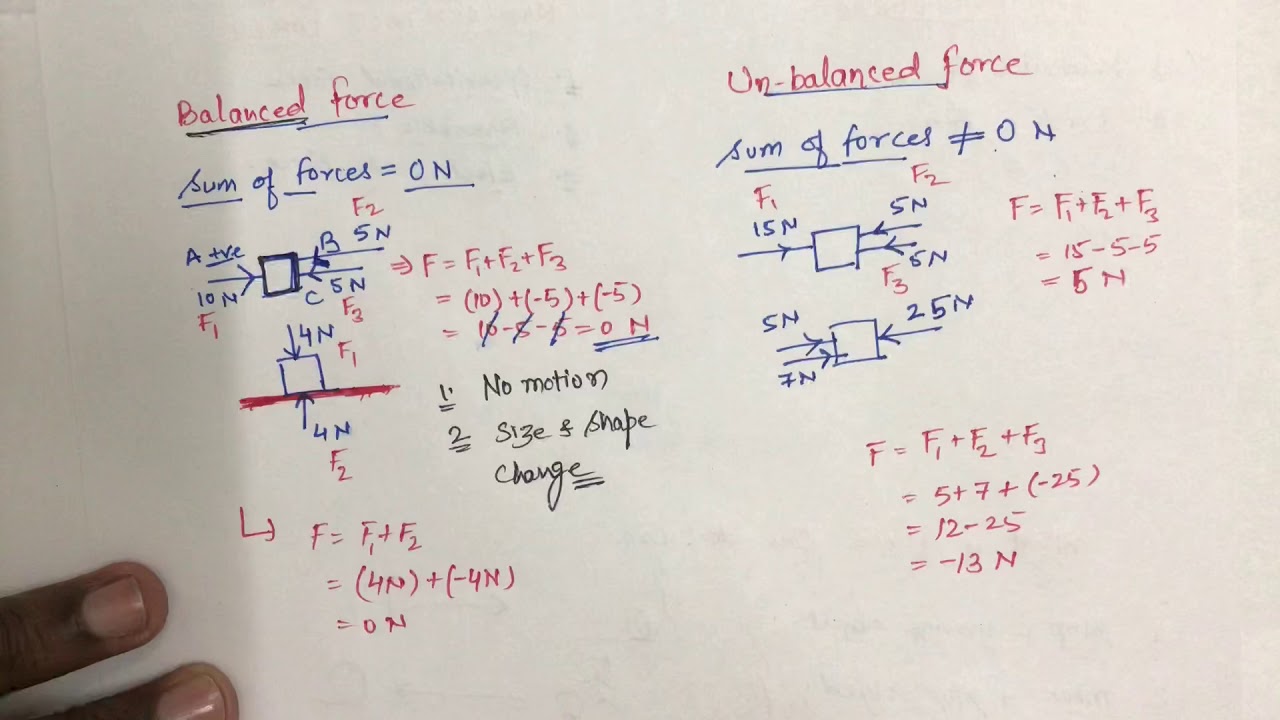 Balanced force
Sum of forces = 0 N
F2
A +ve
B 5N
10 N
C 5N
F1
F3
⇒ F = F1+F2+F3
= (10)+(-5)+(-5)
= 10-5-5 = 0 N
4N
F1
4N
F2
1. No motion
2 Size & Shape
Change
↳ F = F1+F2
= (4N)+(-4N)
= 0 N
Un-balanced force
Sum of forces ≠ 0 N
F1
F2
15N
5N
5N
F3
F = F1+F2+F3
= 15-5-5
= 5 N
5N
25N
7N
F = F1+F2+F3
= 5+7+(-25)
= 12-25
= -13 N